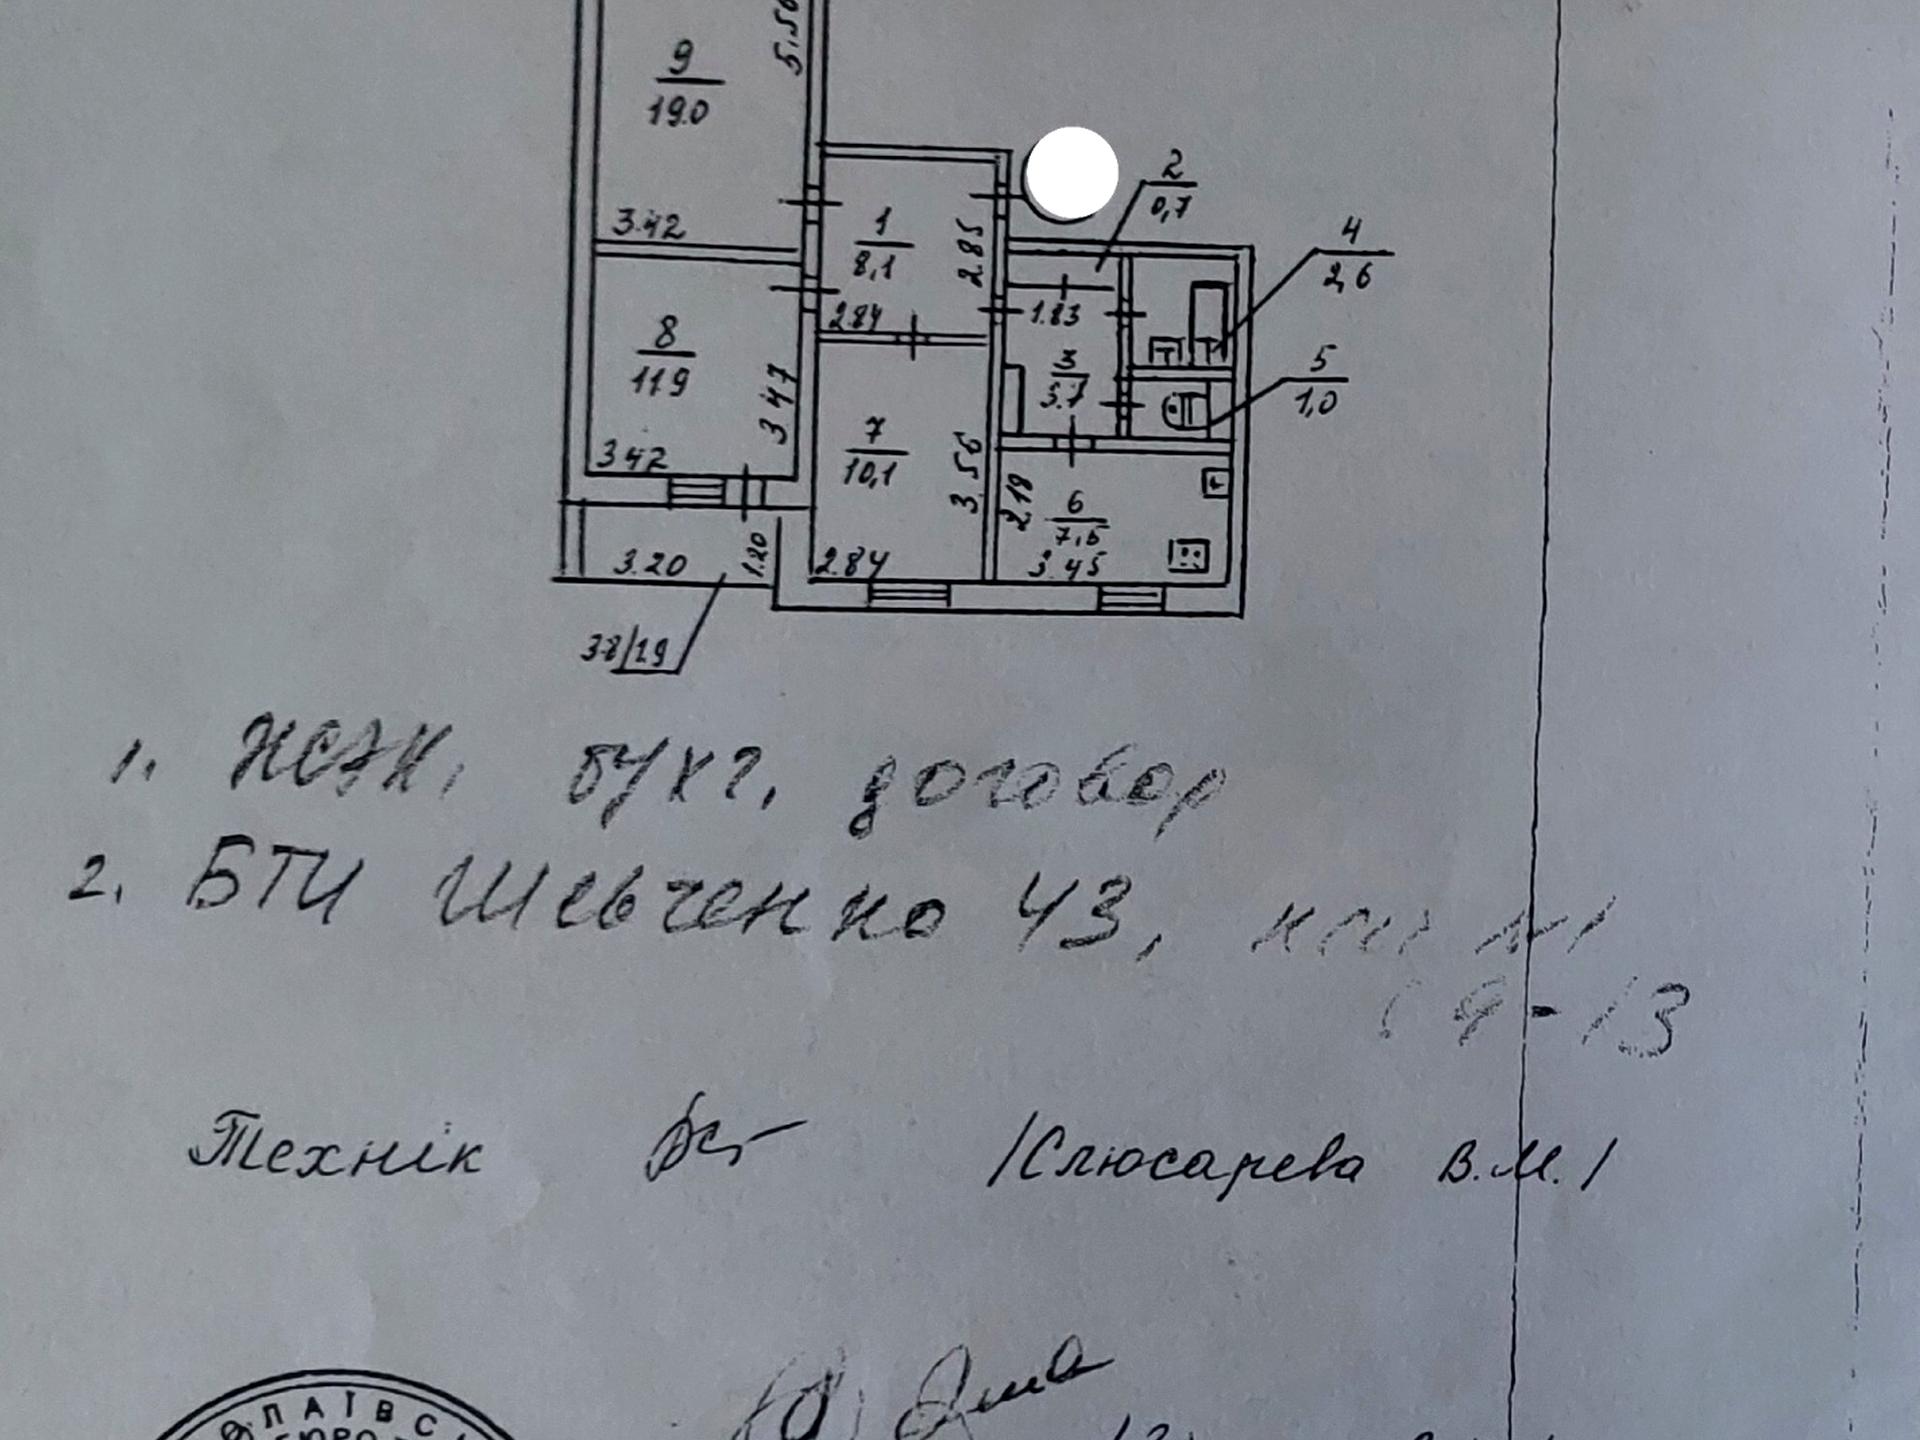 5.56
9
19.0
3.42
1
8,1
2.85
2.84
2
0,7
4
2,6
1.83
3
3.7
5
1,0
8
11.9
3.47
3.42
7
10,1
3.56
2.84
2.19
6
3.45
3.20
1.20
3.8/1.9
1. ЖСЭК, бухг, договор
2. БТИ Шевченко 43,
Технік /Слюсарева В.М./
ОЛАЇВС
БЮРО